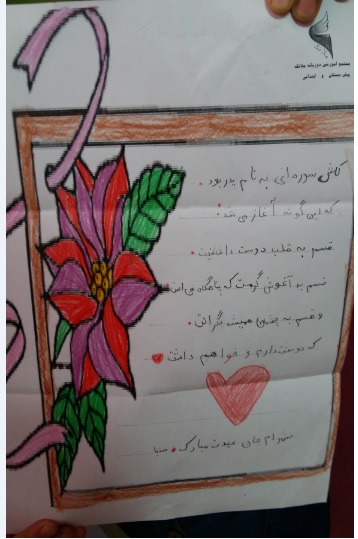 مجتمع آموزشی دوزبانه ملائک
پیش دبستان و ابتدایی
کاش سوره ای به نام پدر بود
که این گونه آغاز می شد:
قسم به قلب دوست داشتنیت
قسم به آغوش گرمت که پناهگاه من است
و قسم به چشمان همیشه نگرانت
که دوستت دارم و خواهم داشت
عیدت مبارک. صبا